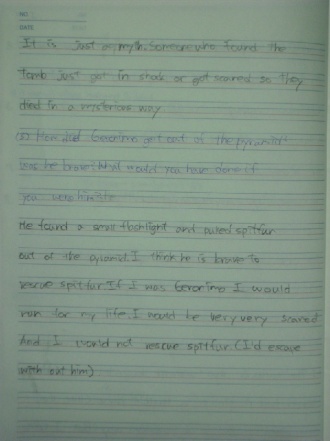 NO.
DATE
It is just a myth. Someone who found the
tomb just got in shock or got scared so they
died in a misterious way
(5) How did Geronimo get out of the pyramid?
Was he brave? What would you have done if
you were him?
He found a small flashlight and pulled spitfur
out of the pyramid. I think he is brave to
rescue spitfur. If I was Geronimo I would
run for my life. I would be very very scared
And I would not rescue spitfur. (I'd escape
with out him)